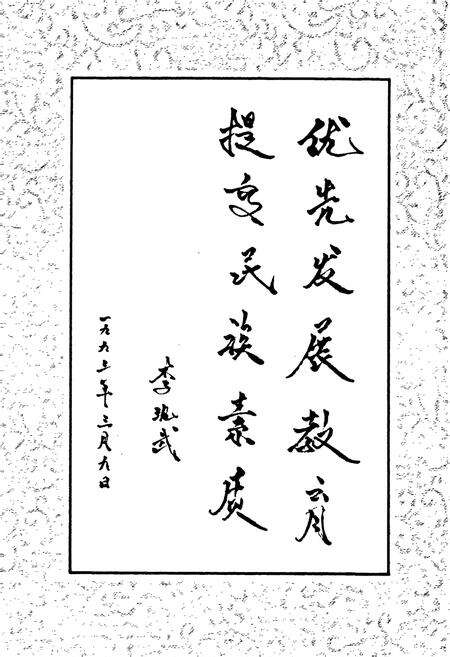 优先发展教育
提高民族素质
李武
一九九年三月九日